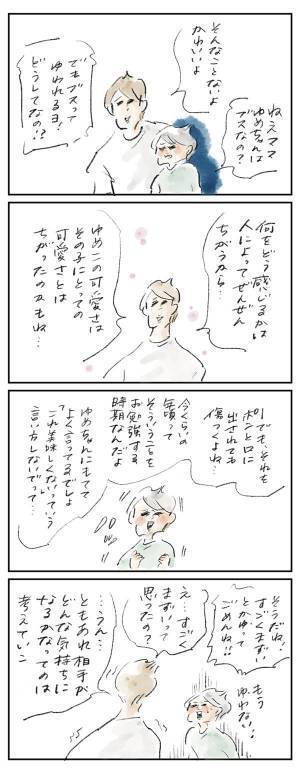 ねえママ
ゆめちゃんは
ブスなの?
そんなことないよ
かわいいよ
でもブスって
ゆわれるヨ!
どうしてなの!?
何をどう感じるかは
人によってぜんぜん
ちがうから…
ゆめこの可愛さは
その子にとっての
可愛さとは
ちがったのかもね…
でも、それを
ポンと口に
出されても
傷つくよね…
今くらいの
年頃って
そういうことを
お勉強する
時期なんだよ
ゆめちゃんにもママ
よく言ってるでしょ
「これ美味しくないっていう
言い方しないでって…
そうだね!
すごくまずい
とかゆって
ごめんね!!
もう
ゆわない…
え…すごく
まずいって
思ったの?
…うん…
ともあれ相手が
どんな気持ちに
なるかなってのは
考えていこ